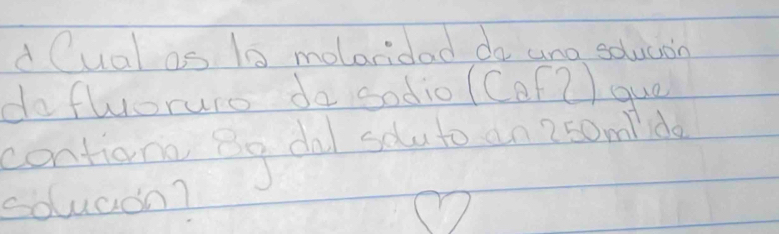 ¿Cual es la molaridad de una solucion
de fluoruro de sodio (CaF2) que
contiene 8g del soluto en 250ml de
solución?